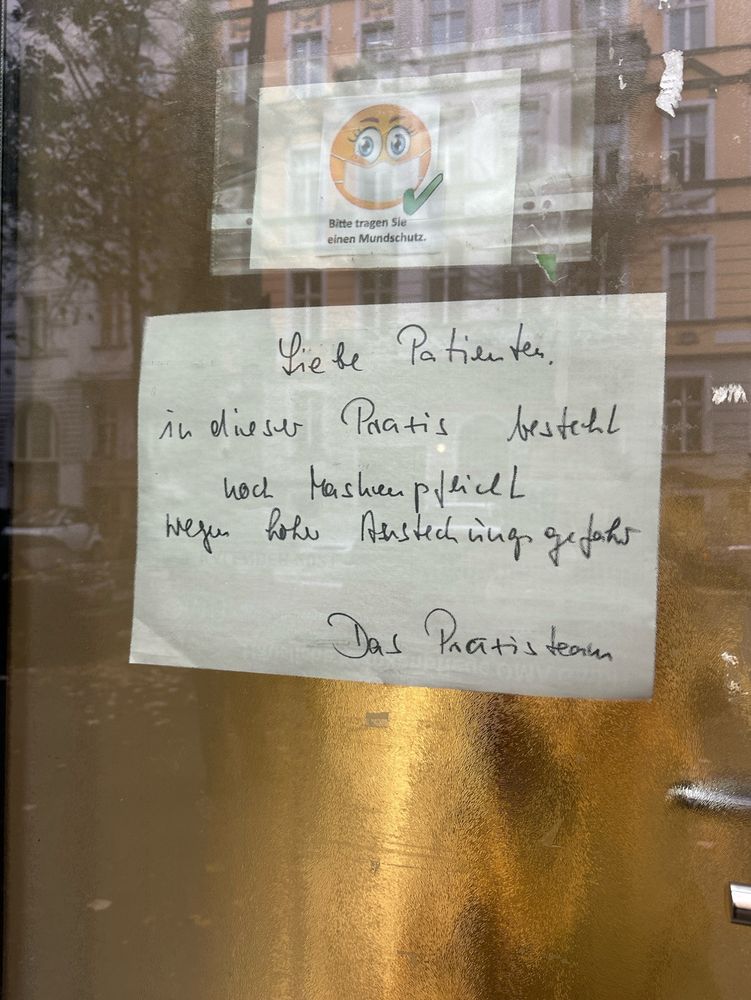 Bitte tragen Sie
einen Mundschutz.
Liebe Patienten,
in dieser Praxis besteht
noch Maskenpflicht
wegen hoher Ansteckungsgefahr
Das Praxisteam